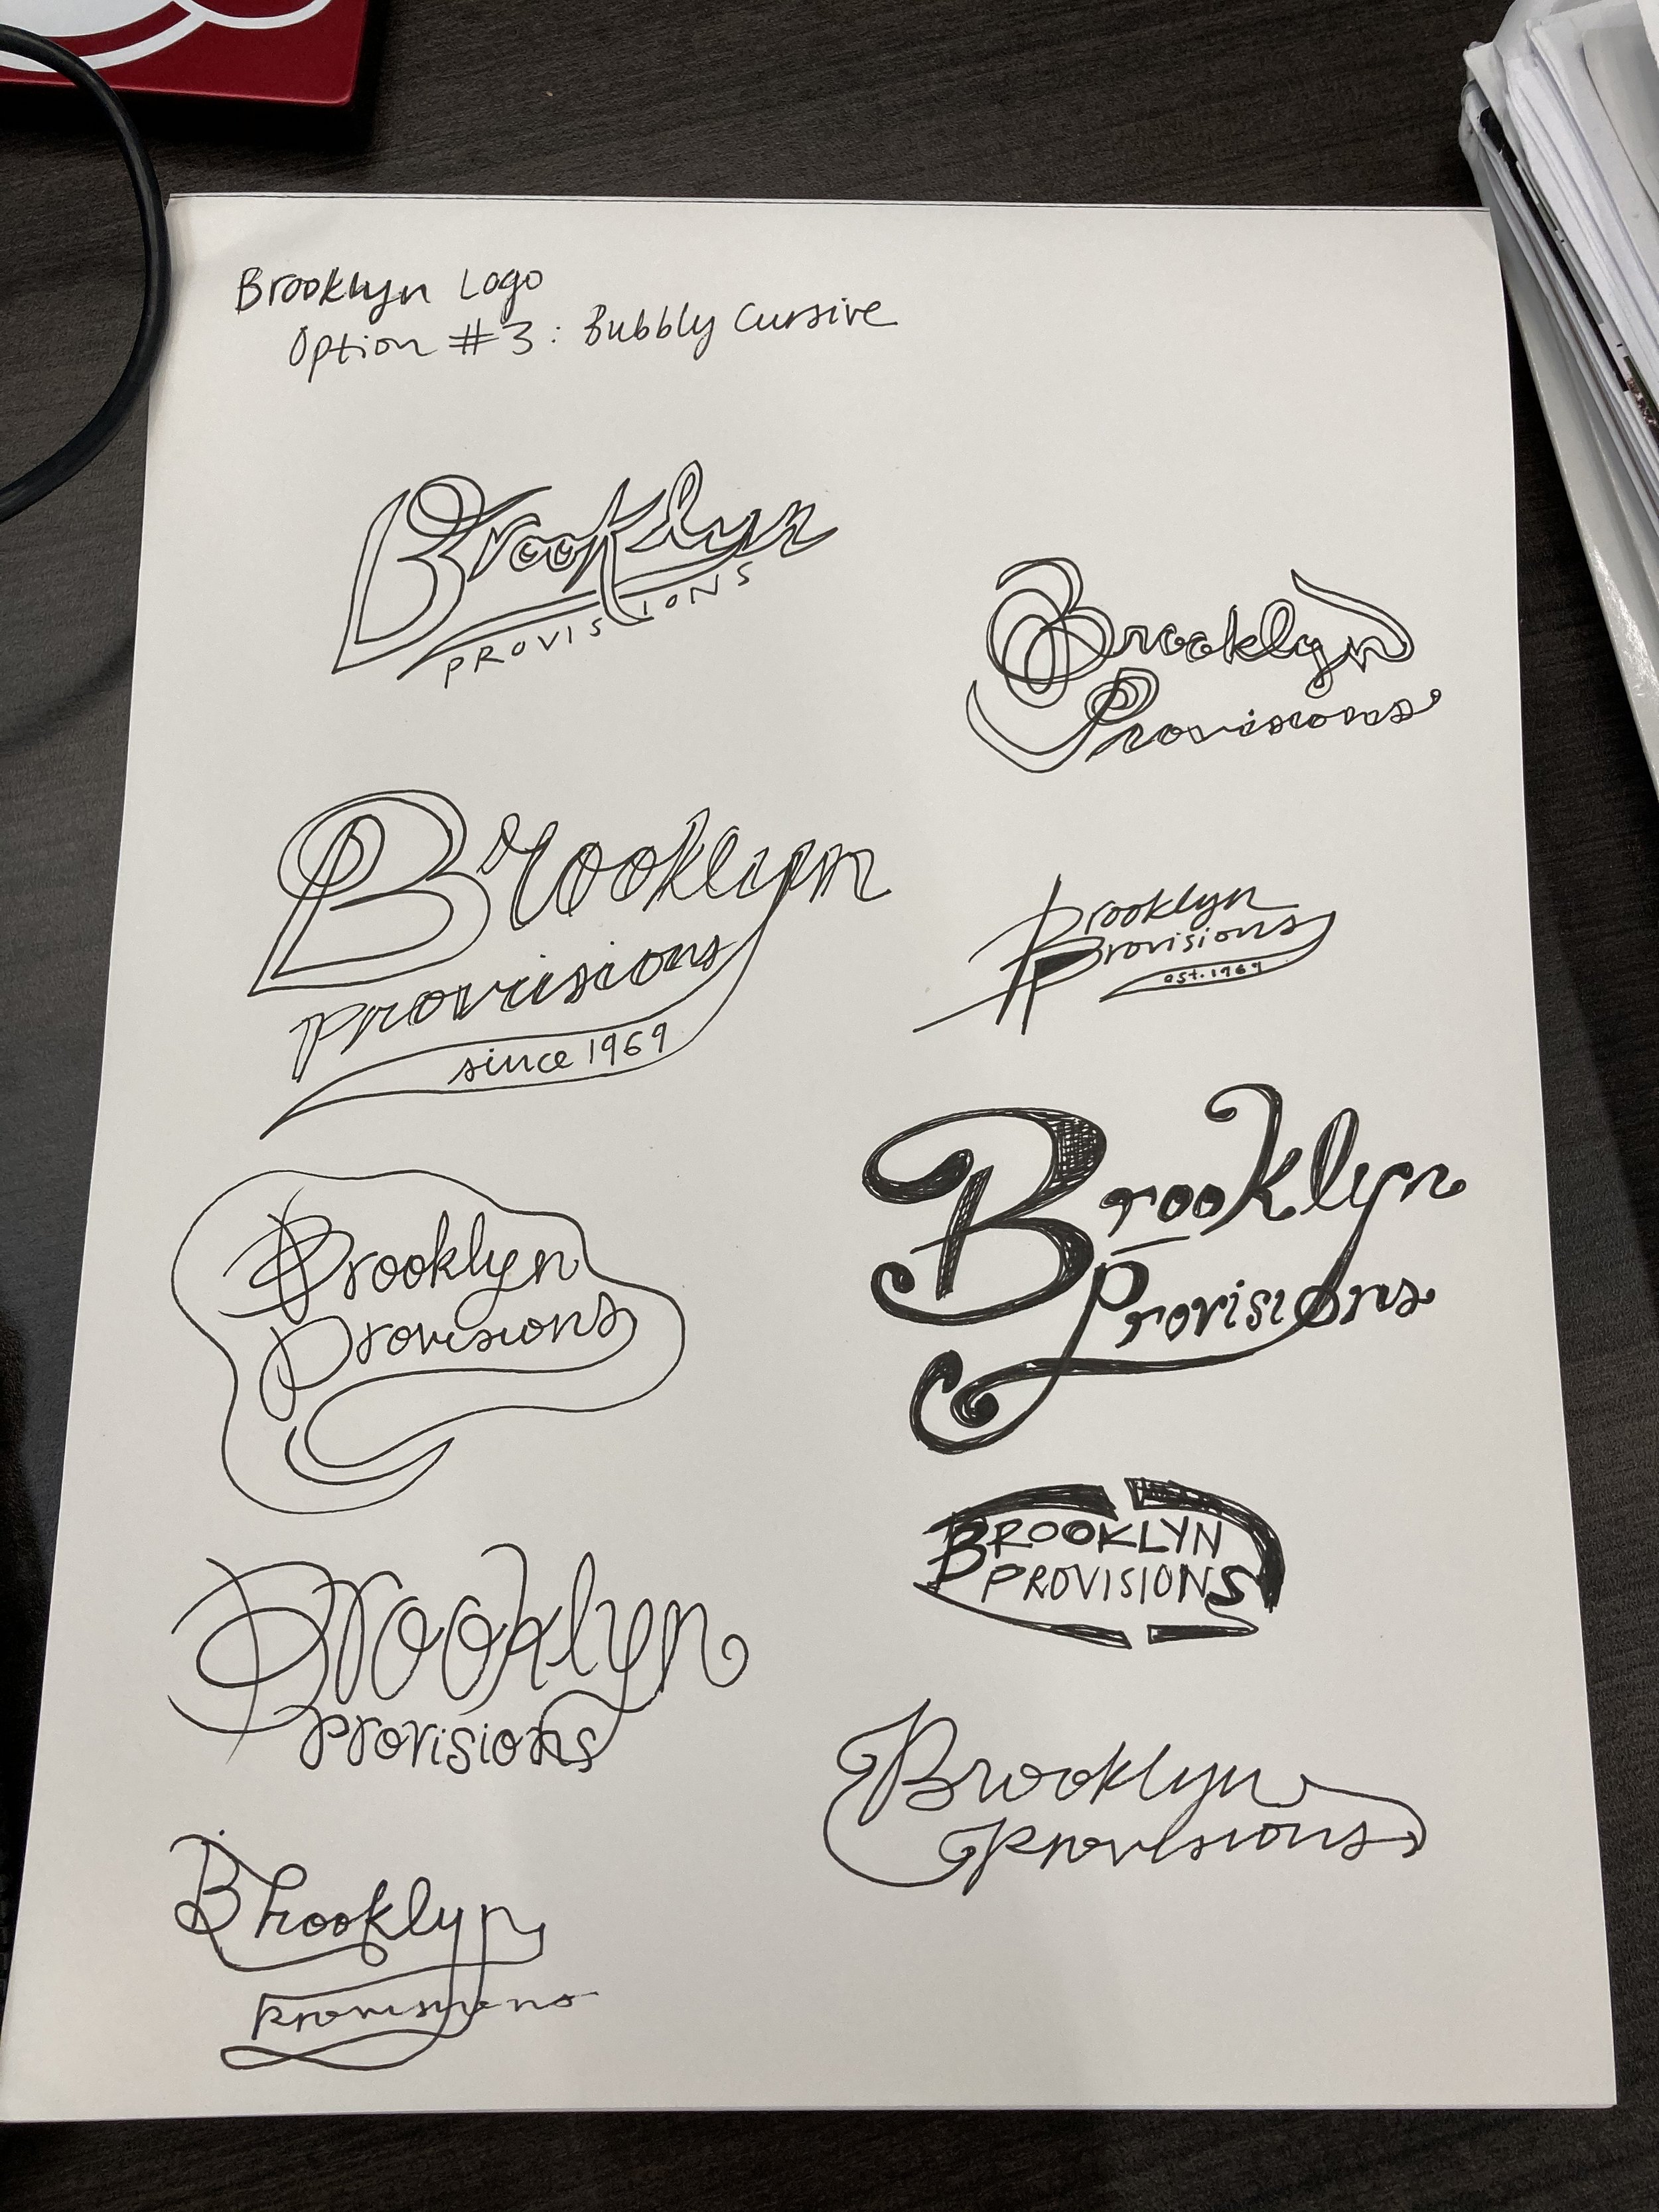 Brooklyn Logo
Option #3: Bubbly Cursive
Brooklyn
PROVISIONS
Brooklyn
Provisions
Brooklyn
provisions
since 1969
Brooklyn
Provisions
est. 1969
Brooklyn
Provisions
Brooklyn
Provisions
BROOKLYN
PROVISIONS
Brooklyn
provisions
Brooklyn
Provisions
Brooklyn
provisions